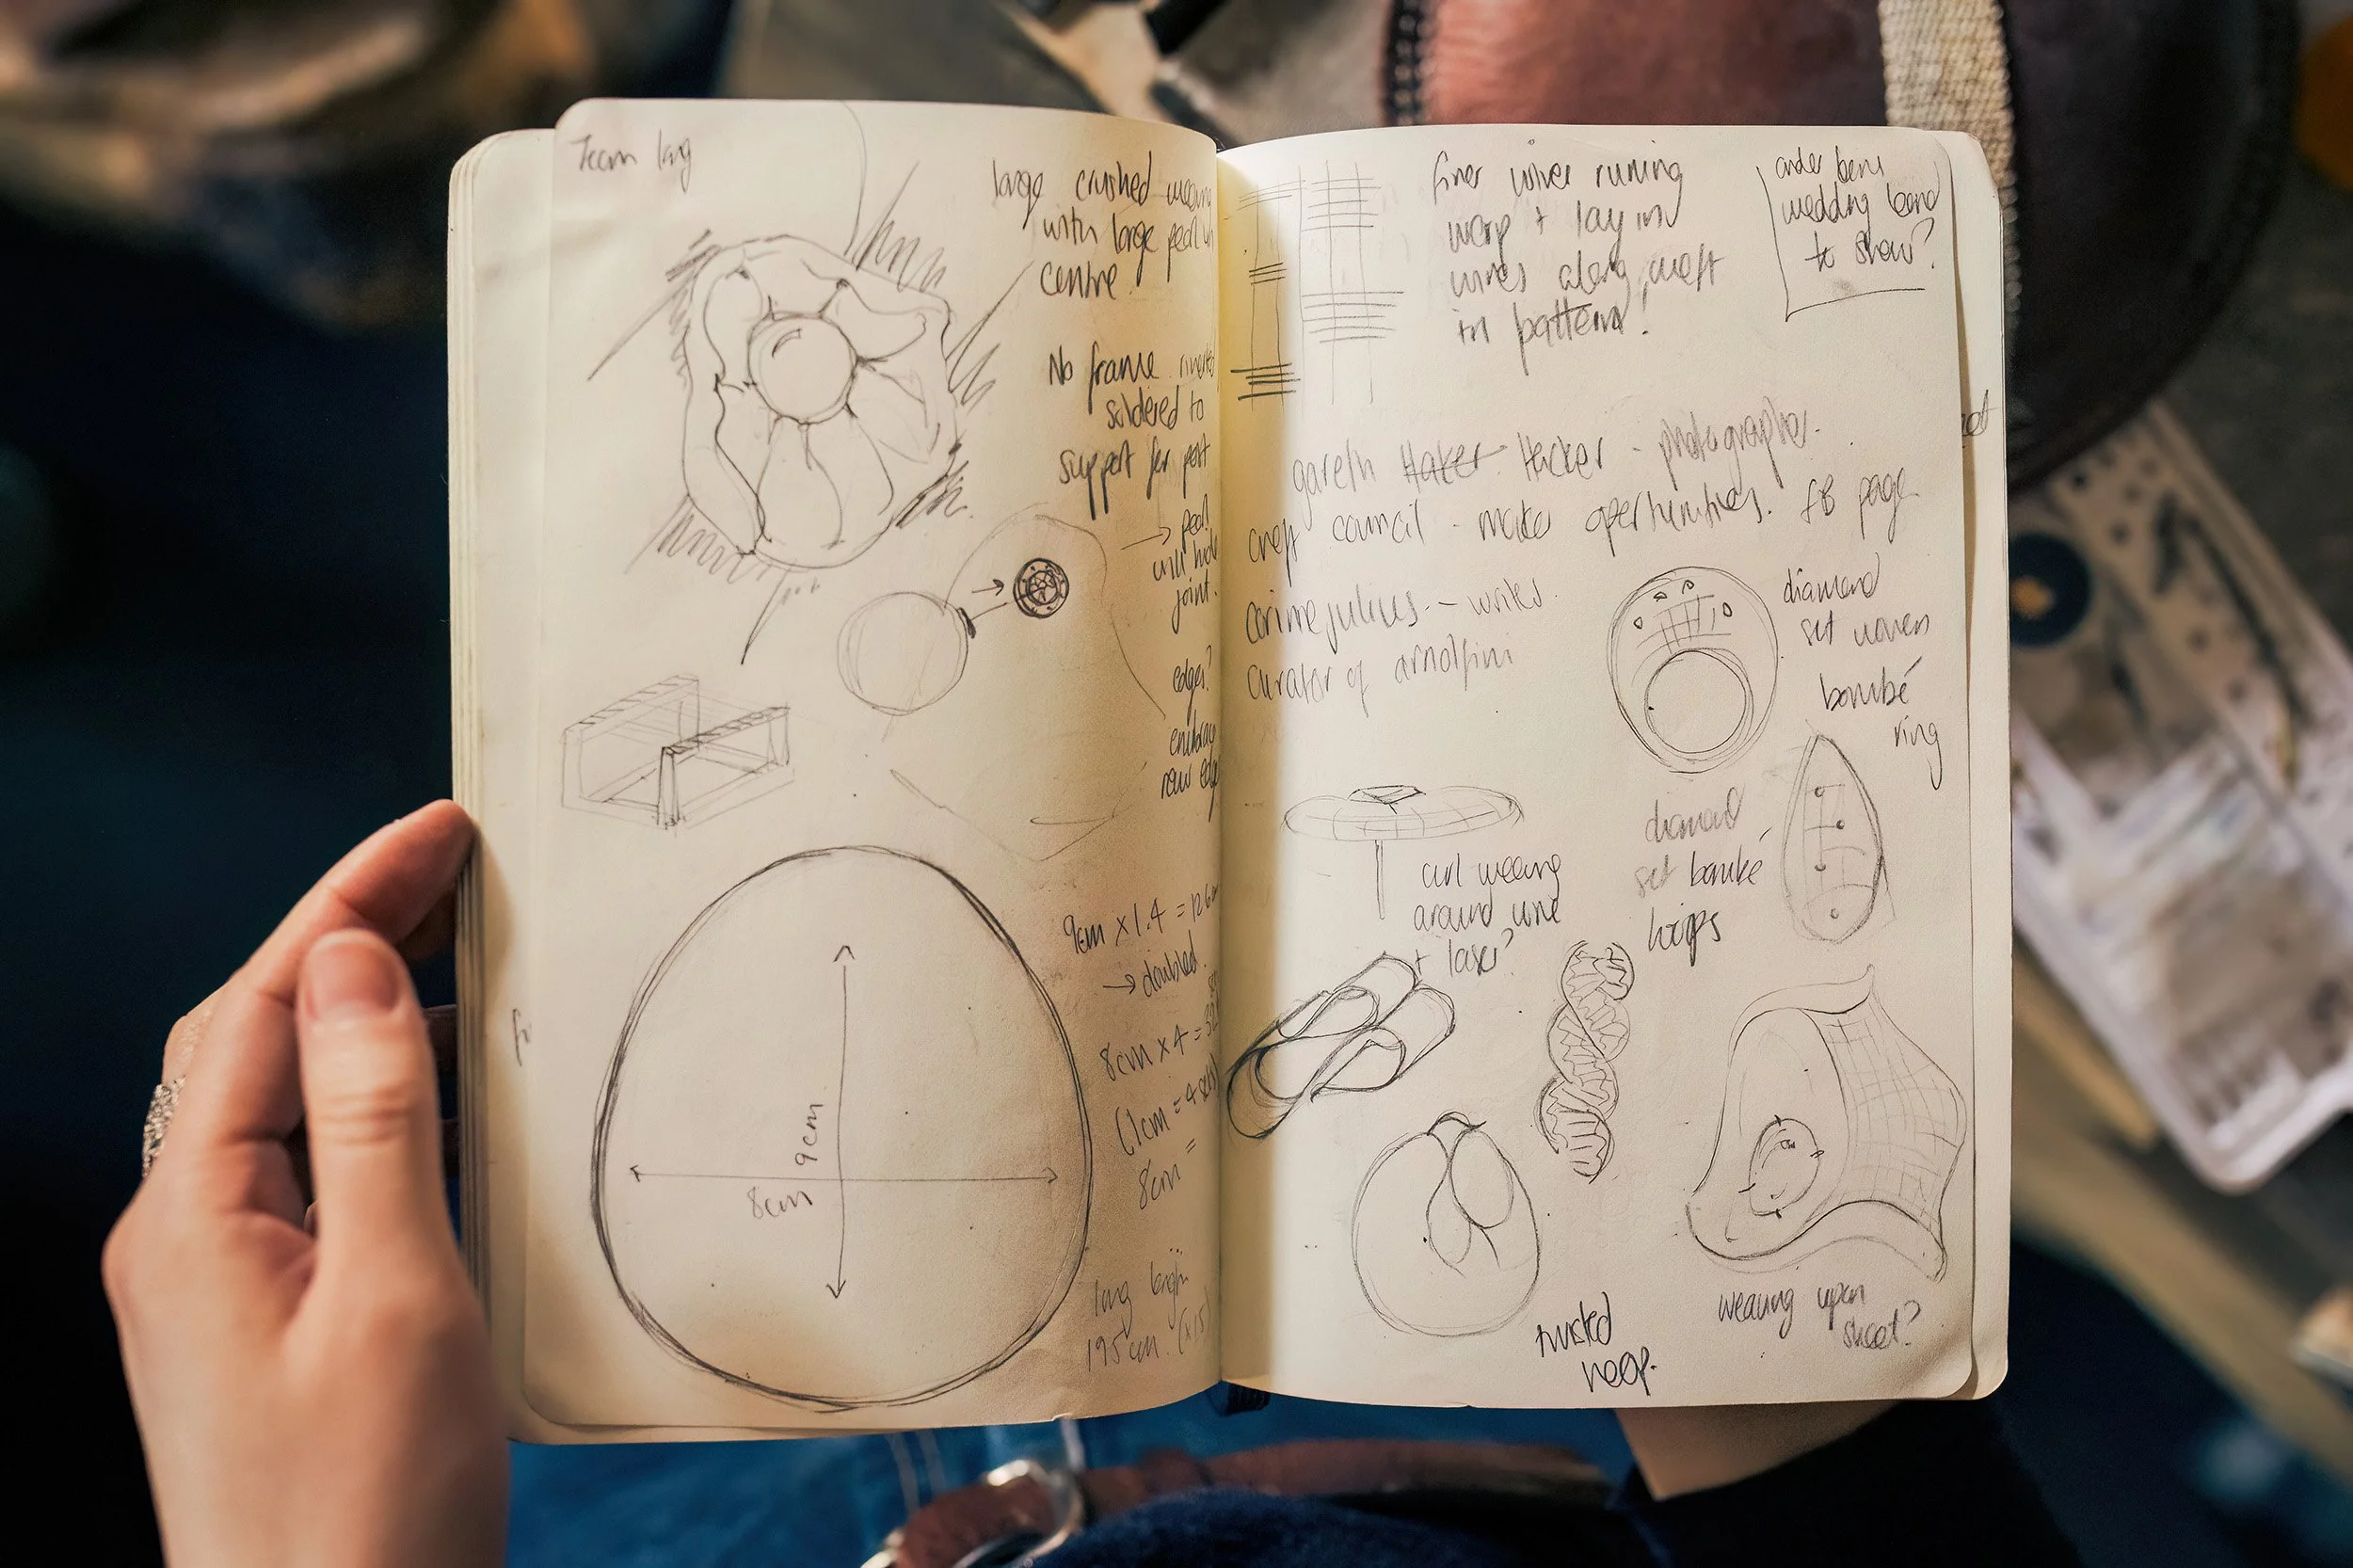 large crushed weaving
with large pearl in
centre.
No frame
soldered to
support for post
→ pearl
will hide
joint.
edges?
embrace
raw edge
9cm x 1.4 = 12.6cm
→ doubled.
8cm x 4 = 32
(1cm = 4
8cm =
9cm
8cm
long length
195cm. (x15)
finer wires running
warp + lay in
wires along weft
in pattern!
wedding band
to show?
gareth Haker Hacker - photographer.
craft council - maker opertunities. fB page
corinne julius - writer.
curator of arnolfini
diamond
set woven
bombé
ring
diamond
set bombé
hoops
curl weaving
around wire
+ laser?
twisted
hoop.
weaving upon
sheet?